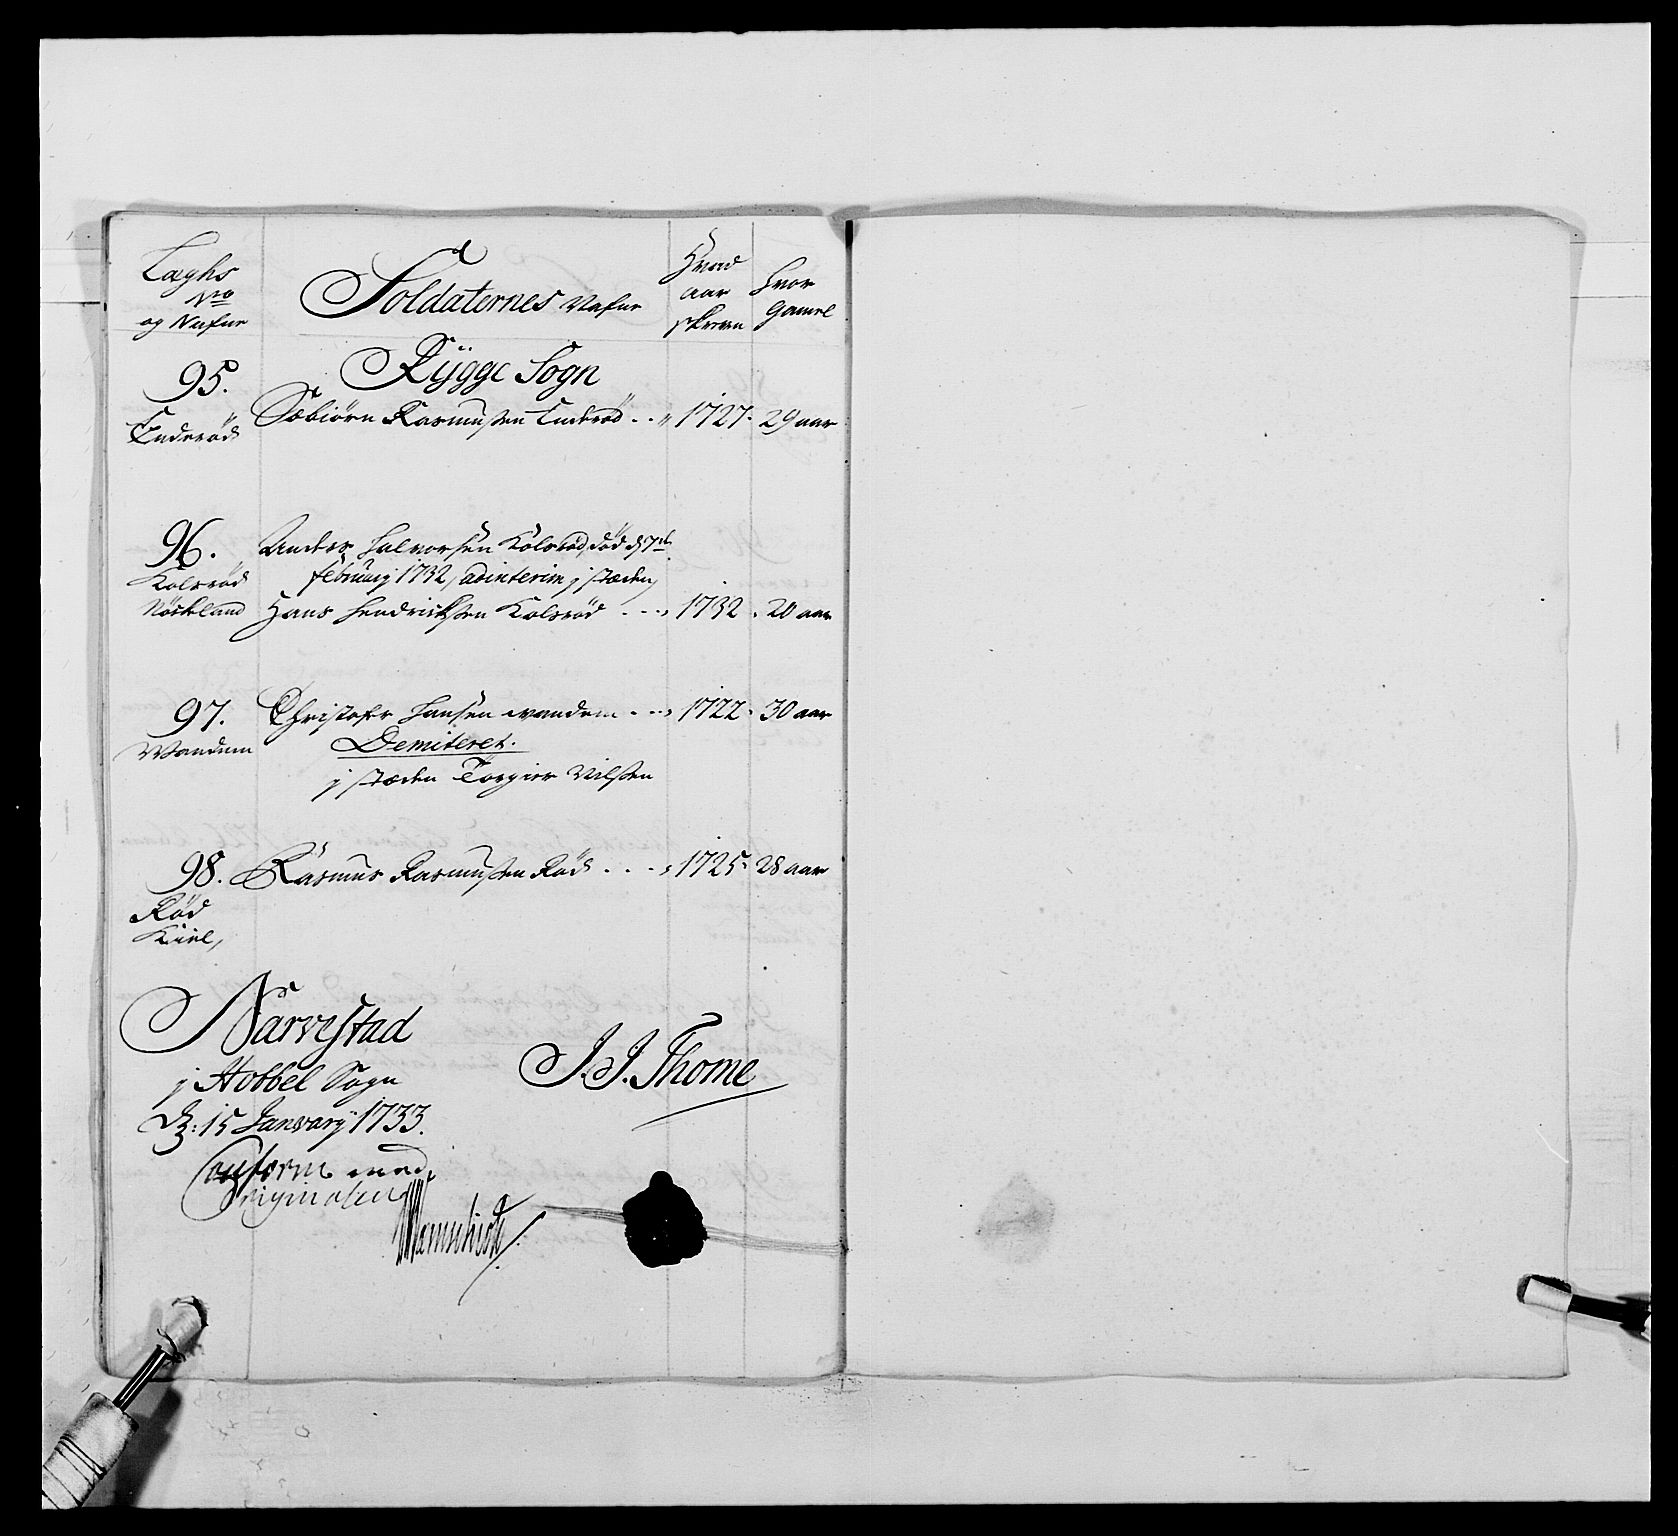 Læghs
No
og Nafne
Soldaternes Nafne
Hvad
aar
skreven
Hvor
Gamel
Rÿgge Sogn
95.
Enderød
Sæbiörn Rasmussen Enderöd . . 1727. 29 aar
96.
Kolsrød
Nöskeland
Anders Halvorsen Kolsröd, död d 7de
februarij 1732, adinterim j stæden,
Hans Hendrichsen Kolsröd . . . 1732. 20 aar
97.
Wandem
Christofer Hansen Wandem . . . 1722. 30 aar
Demiteret.
j stæden Torgier Nilssen
98.
Rød
Kiil,
Rasmus Rasmussen Röd . . . 1725. 28 aar
Narvestad
j Hobbel Sogn
D: 15 January 1733.
J. J. Thome
Conform med
Originalen